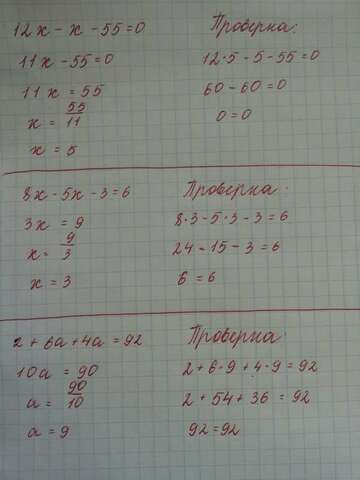 12х - х - 55 = 0
11х - 55 = 0
11х = 55
х = 55/11
х = 5
Проверка:
12·5 - 5 - 55 = 0
60 - 60 = 0
0 = 0
8х - 5х - 3 = 6
3х = 9
х = 9/3
х = 3
Проверка:
8·3 - 5·3 - 3 = 6
24 - 15 - 3 = 6
6 = 6
2 + 6а + 4а = 92
10а = 90
а = 90/10
а = 9
Проверка:
2 + 6·9 + 4·9 = 92
2 + 54 + 36 = 92
92 = 92